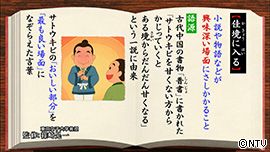 【佳境に入る】
小説や物語などが
興味深い場面にさしかかること
語源
古代中国の書物「晋書」に書かれた
「サトウキビを甘くない方から
かじっていくと
ある境からだんだん甘くなる」
という一説に由来
サトウキビの「おいしい部分」を
「最も良い場面」に
なぞらえた言葉
©NTV